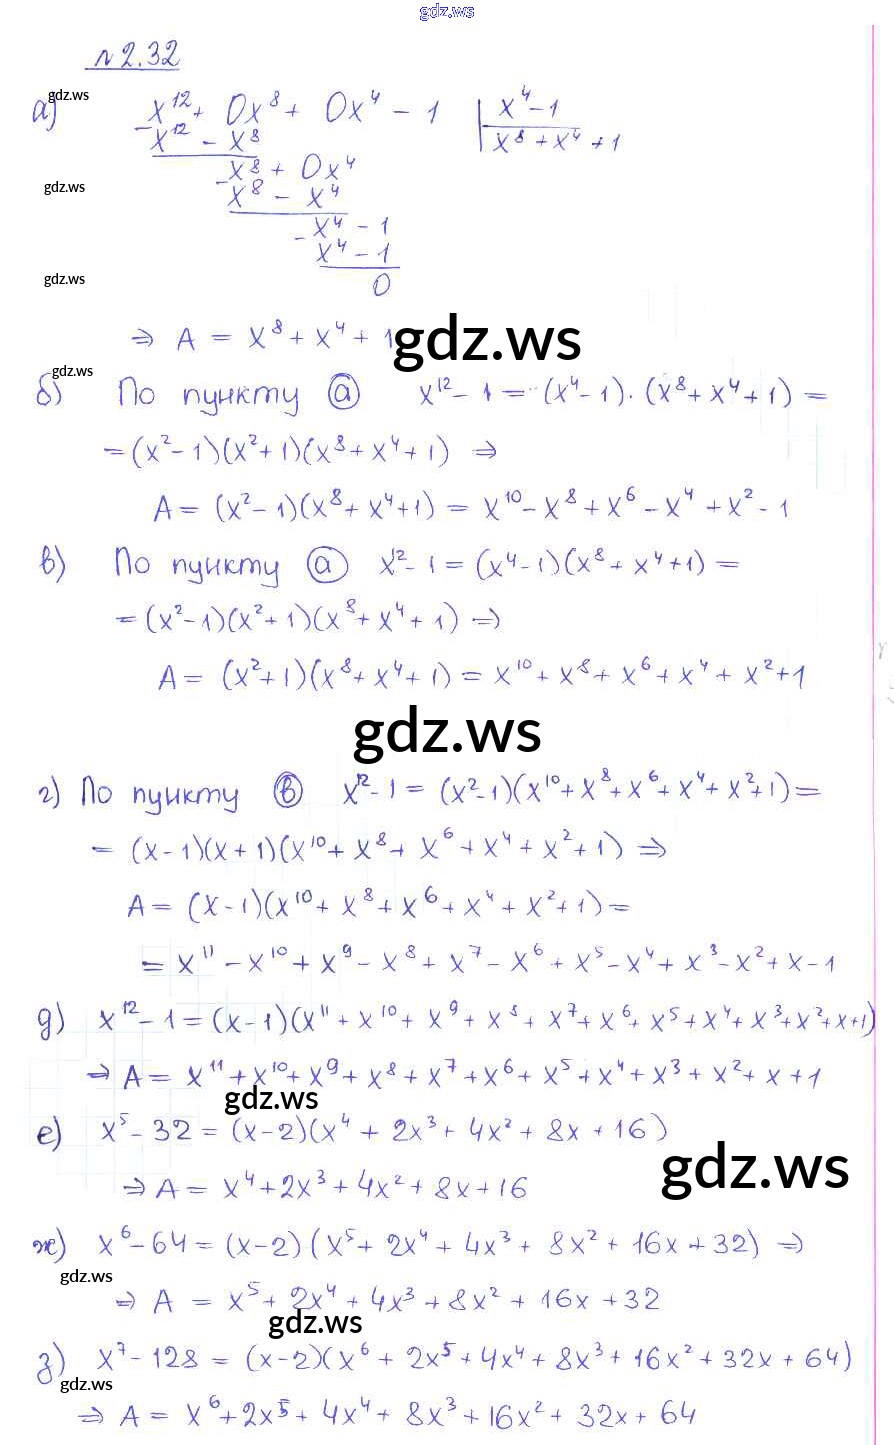 gdz.ws
№2.32
а) x¹² + 0x⁸ + 0x⁴ - 1 | x⁴-1
gdz.ws
- x¹² - x⁸ | x⁸ + x⁴ + 1
- x⁸ + 0x⁴
gdz.ws
x⁸ - x⁴
- x⁴ - 1
x⁴ - 1
gdz.ws
0
⇒ A = x⁸ + x⁴ + 1
gdz.ws
gdz.ws
б) По пункту ⓐ x¹² - 1 = (x⁴-1)·(x⁸+x⁴+1) =
= (x²-1)(x²+1)(x⁸+x⁴+1) ⇒
A = (x²-1)(x⁸+x⁴+1) = x¹⁰ - x⁸ + x⁶ - x⁴ + x² - 1
в) По пункту ⓐ x¹² - 1 = (x⁴-1)(x⁸+x⁴+1) =
= (x²-1)(x²+1)(x⁸+x⁴+1) ⇒
A = (x²+1)(x⁸+x⁴+1) = x¹⁰ + x⁸ + x⁶ + x⁴ + x² + 1
gdz.ws
г) По пункту ⓑ x¹² - 1 = (x²-1)(x¹⁰+x⁸+x⁶+x⁴+x²+1) =
= (x-1)(x+1)(x¹⁰+x⁸+x⁶+x⁴+x²+1) ⇒
A = (x-1)(x¹⁰+x⁸+x⁶+x⁴+x²+1) =
= x¹¹ - x¹⁰ + x⁹ - x⁸ + x⁷ - x⁶ + x⁵ - x⁴ + x³ - x² + x - 1
д) x¹² - 1 = (x-1)(x¹¹+x¹⁰+x⁹+x⁸+x⁷+x⁶+x⁵+x⁴+x³+x²+x+1)
⇒ A = x¹¹+x¹⁰+x⁹+x⁸+x⁷+x⁶+x⁵+x⁴+x³+x²+x+1
gdz.ws
е) x⁵ - 32 = (x-2)(x⁴+2x³+4x²+8x+16)
gdz.ws
⇒ A = x⁴+2x³+4x²+8x+16
ж) x⁶ - 64 = (x-2)(x⁵+2x⁴+4x³+8x²+16x+32) ⇒
gdz.ws
⇒ A = x⁵+2x⁴+4x³+8x²+16x+32
gdz.ws
з) x⁷ - 128 = (x-2)(x⁶+2x⁵+4x⁴+8x³+16x²+32x+64)
gdz.ws
⇒ A = x⁶+2x⁵+4x⁴+8x³+16x²+32x+64